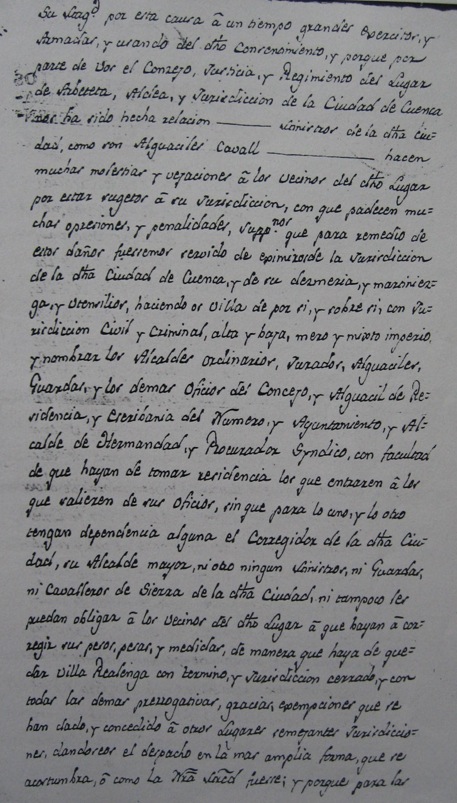 Su Mag.^d por esta causa â un tiempo grandes Exercitos, y
Armadas, y usando del dho Consentimiento, y porque por
parte de Vos el Conzejo, Justicia, y Regimiento del Lugar
de Aldea, y Jurisdiccion de la Ciudad de Cuenca
nos ha sido hecha relacion ——— Ministros de la dha Ciu-
dad, como son Alguaciles Cavall ——— hacen
muchas molestias y vejaciones â los Vecinos del dho Lugar
por estar sugetos â su Jurisdiccion, con que padecen mu-
chas opresiones, y penalidades, Supp.^nos que para remedio de
estos daños fuessemos servido de eximiros de la Jurisdiccion
de la dha Ciudad de Cuenca, y de su dezmeria, y
y Utensilios, haciendo os Villa de por si, y sobre si, con Ju-
risdiccion Civil y Criminal, alta y baja, mero y mixto imperio,
y nombrar los Alcaldes Ordinarios, Jurados, Alguaciles,
Guardas, y los demas Oficios del Concejo, y Alguacil de Re-
sidencia, y Escribania del Numero, y Ayuntamiento, y Al-
calde de Hermandad, y Procurador Syndico, con facultad
de que hayan de tomar residencia los que entraren â los
que salieren de sus Oficios, sin que para lo uno, y lo otro
tengan dependencia alguna el Corregidor de la dha Ciu-
dad, su Alcalde mayor, ni otro ningun Ministros, ni Guardas,
ni Cavalleros de Sierra de la dha Ciudad, ni tampoco les
puedan obligar â los Vecinos del dho Lugar â que hayan â cor-
regir sus pesos, pesas, y medidas, de manera que haya de que-
dar Villa Realenga con termino, y Jurisdiccion cerrado, y con
todas las demas prerrogativas, gracias, exempciones que se
han dado, y concedido â otros Lugares semejantes Jurisdiccio-
nes, dandoseos el despacho en la mas amplia forma, que se
acostumbra, ô como la Nrã Mrcd fuesse; y porque para las